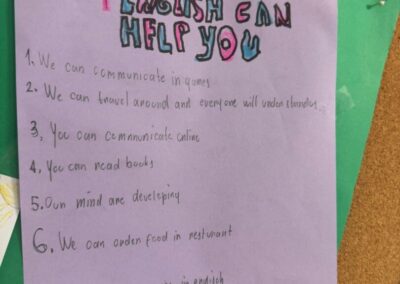 ENGLISH CAN
HELP YOU
1. We can communicate in games
2. We can travel around and everyone will understand us
3. You can communicate online
4. You can read books
5. Our mind are developing
6. We can order food in resturant
in english